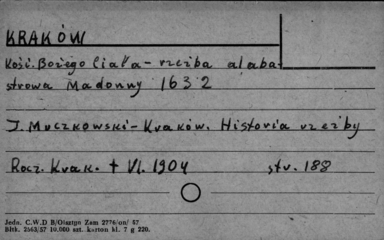 KRAKÓW
Kość. Bożego Ciała - rzeźba alaba-
strowa Madonny 1632
J. Muczkowski - Kraków. Historia rzeźby
Rocz. Krak. † VI. 1904 str. 188
Jedn. C.W.D B/Olsztyn Zam 2776/on/ 57
Bltk. 2563/57 10.000 szt. karton kl. 7 g 220.